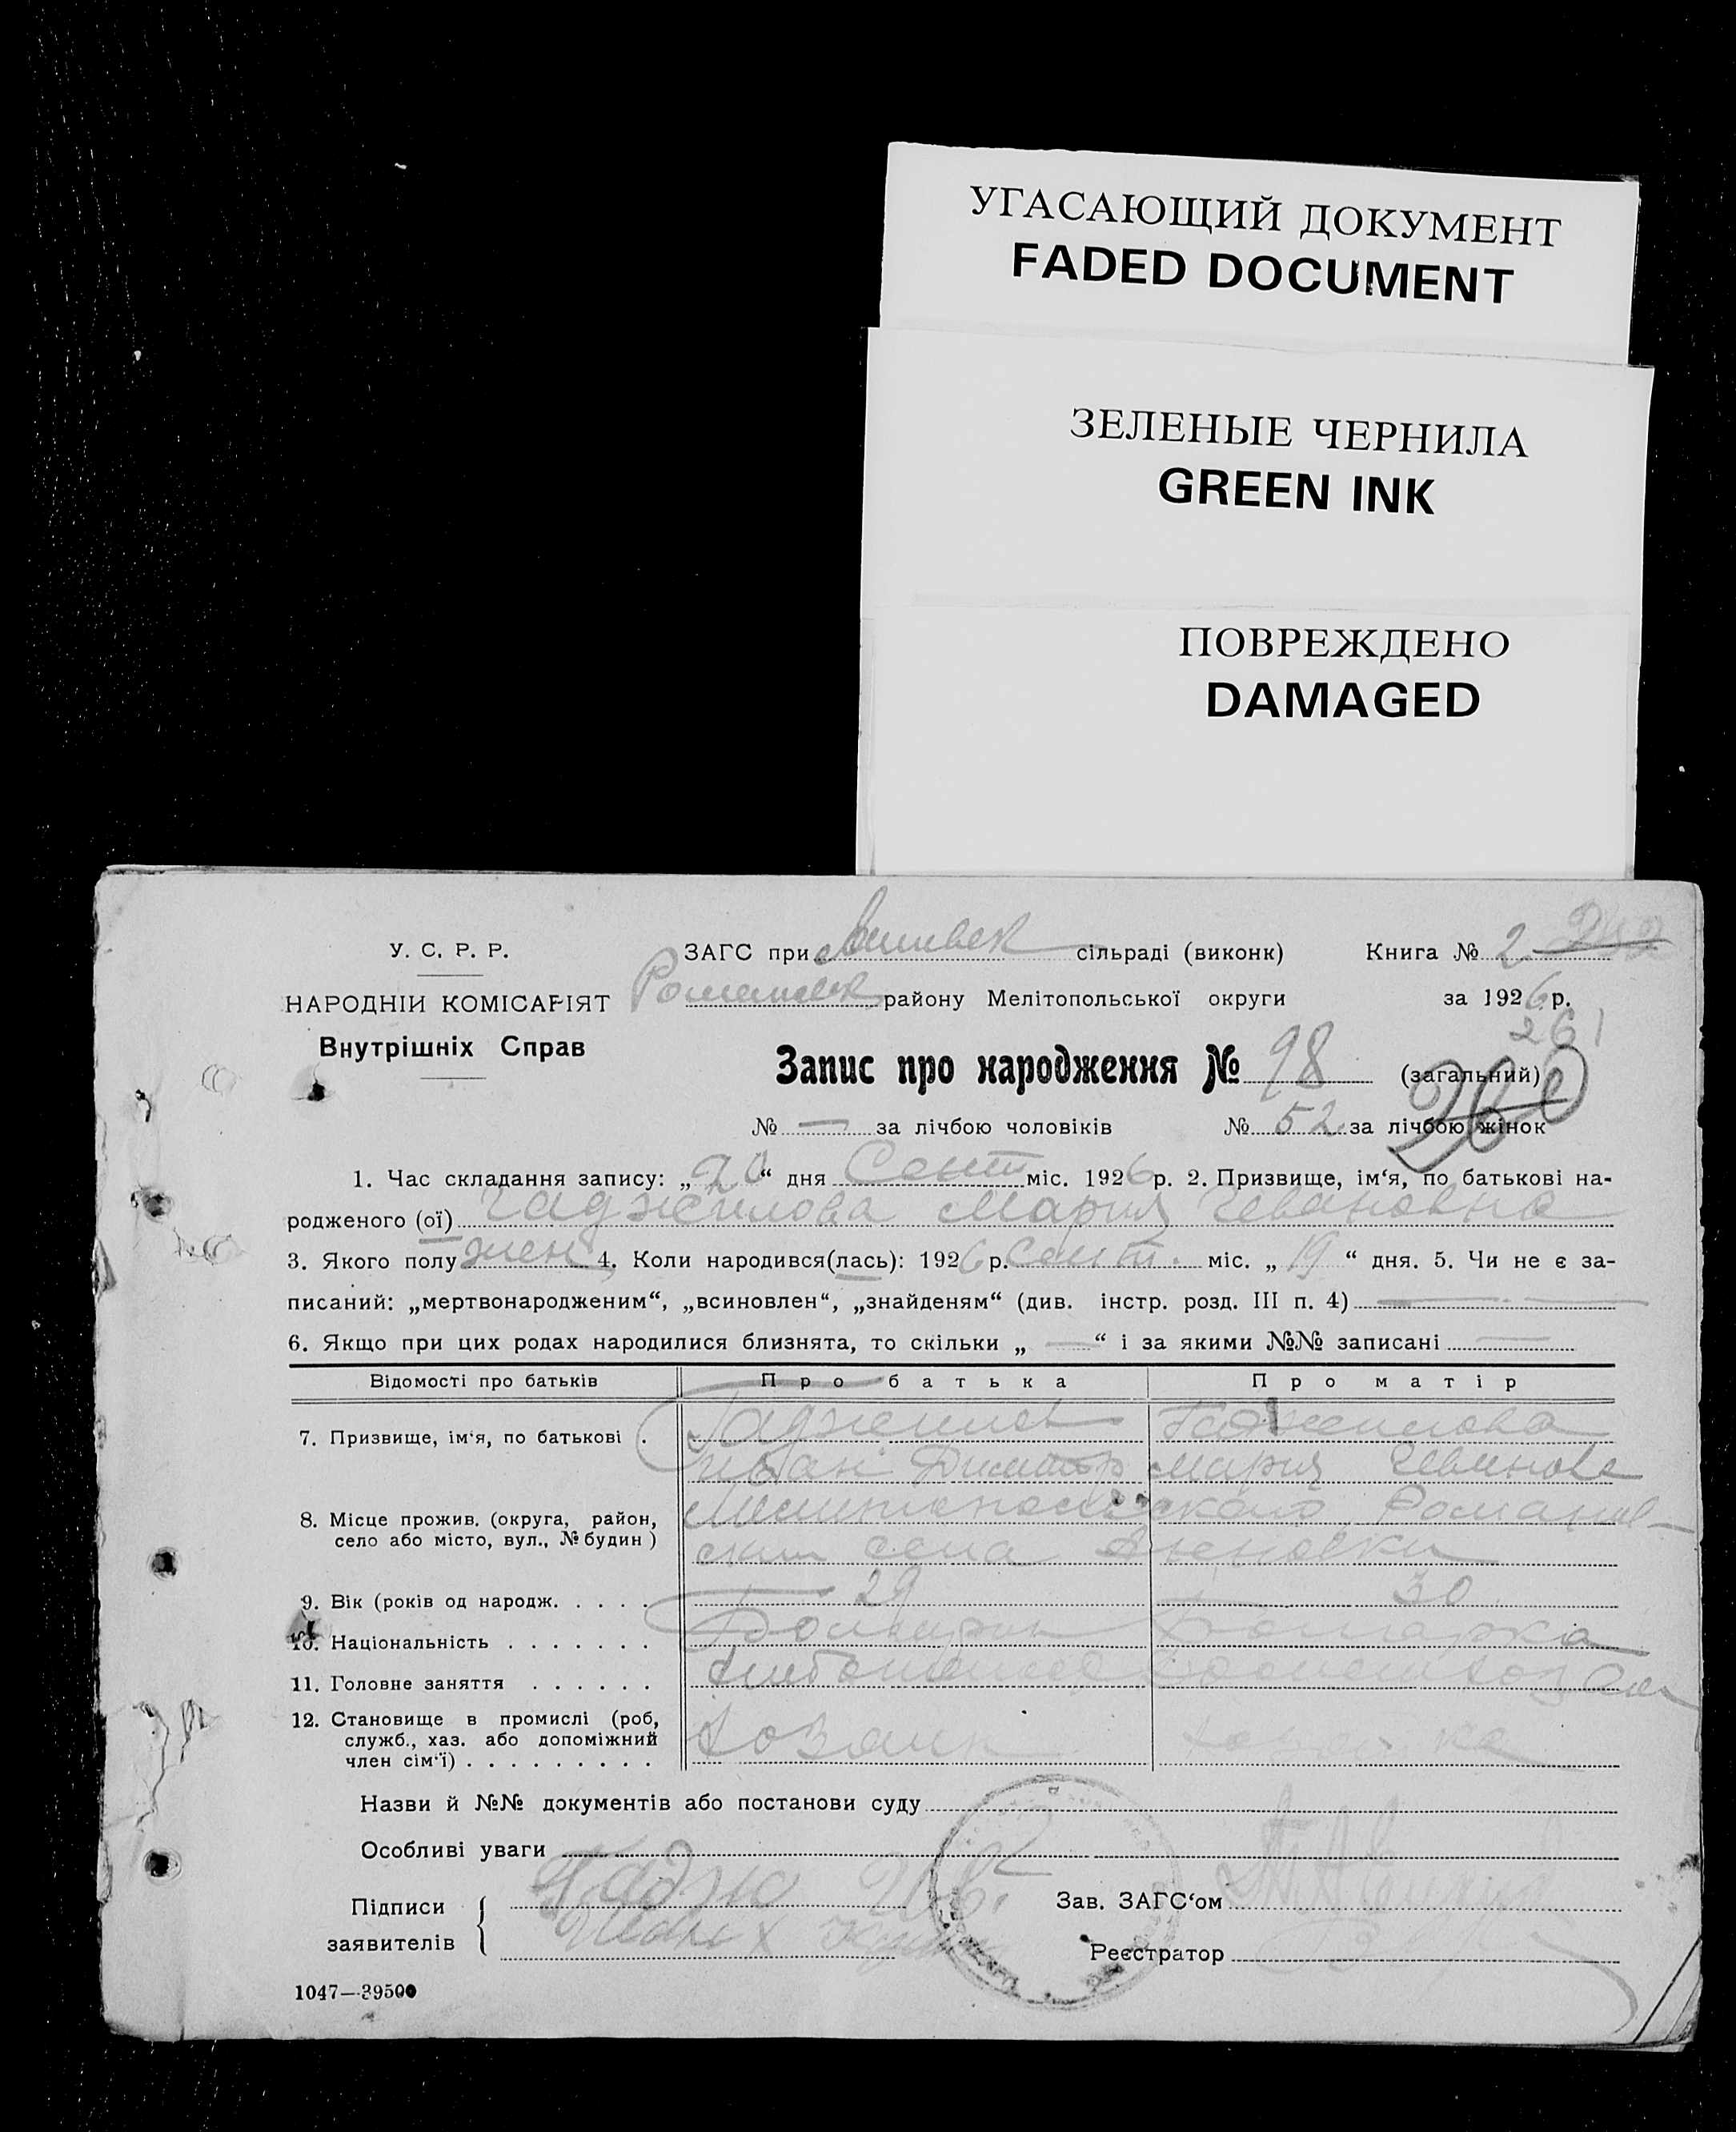 УГАСАЮЩИЙ ДОКУМЕНТ
FADED DOCUMENT
ЗЕЛЕНЫЕ ЧЕРНИЛА
GREEN INK
ПОВРЕЖДЕНО
DAMAGED
У. С. Р. Р.
НАРОДНІЙ КОМІСАРІЯТ
Внутрішніх Справ
ЗАГС при сільраді (виконк) Книга № 2
Романовск району Мелітопольської округи за 1926 р.
261
Запис про народження № 98 (загальний)
260
№ — за лічбою чоловіків № 52 за лічбою жінок
1. Час складання запису: „20“ дня Сент міс. 1926 р. 2. Призвище, ім‘я, по батькові на-
родженого (ої) Гаджилова Мария Ивановна
3. Якого полу жен 4. Коли народився(лась): 1926 р. Сент. міс. „19“ дня. 5. Чи не є за-
писаний: „мертвонародженим“, „всиновлен“, „знайденям“ (див. інстр. розд. III п. 4) —
6. Якщо при цих родах народилися близнята, то скільки „—“ і за якими №№ записані —
Відомості про батьків Про батька Про матір
7. Призвище, ім‘я, по батькові . Гаджилов Гаджилова
Иван Димитр Мария Иванова
8. Місце прожив. (округа, район, Мелитопольского Романов-
село або місто, вул., № будин ) ским села
9. Вік (років од народж. . . . . 29 30
10. Національність . . . . . . . Болгарин Болгарка
11. Головне заняття . . . . . . Хлебопашец
12. Становище в промислі (роб, Хозаин
служб., хаз. або допоміжний
член сім‘ї) . . . . . . . . .
Назви й №№ документів або постанови суду
Особливі уваги
Підписи
заявителів
Зав. ЗАГС‘ом
Реєстратор
1047—39500